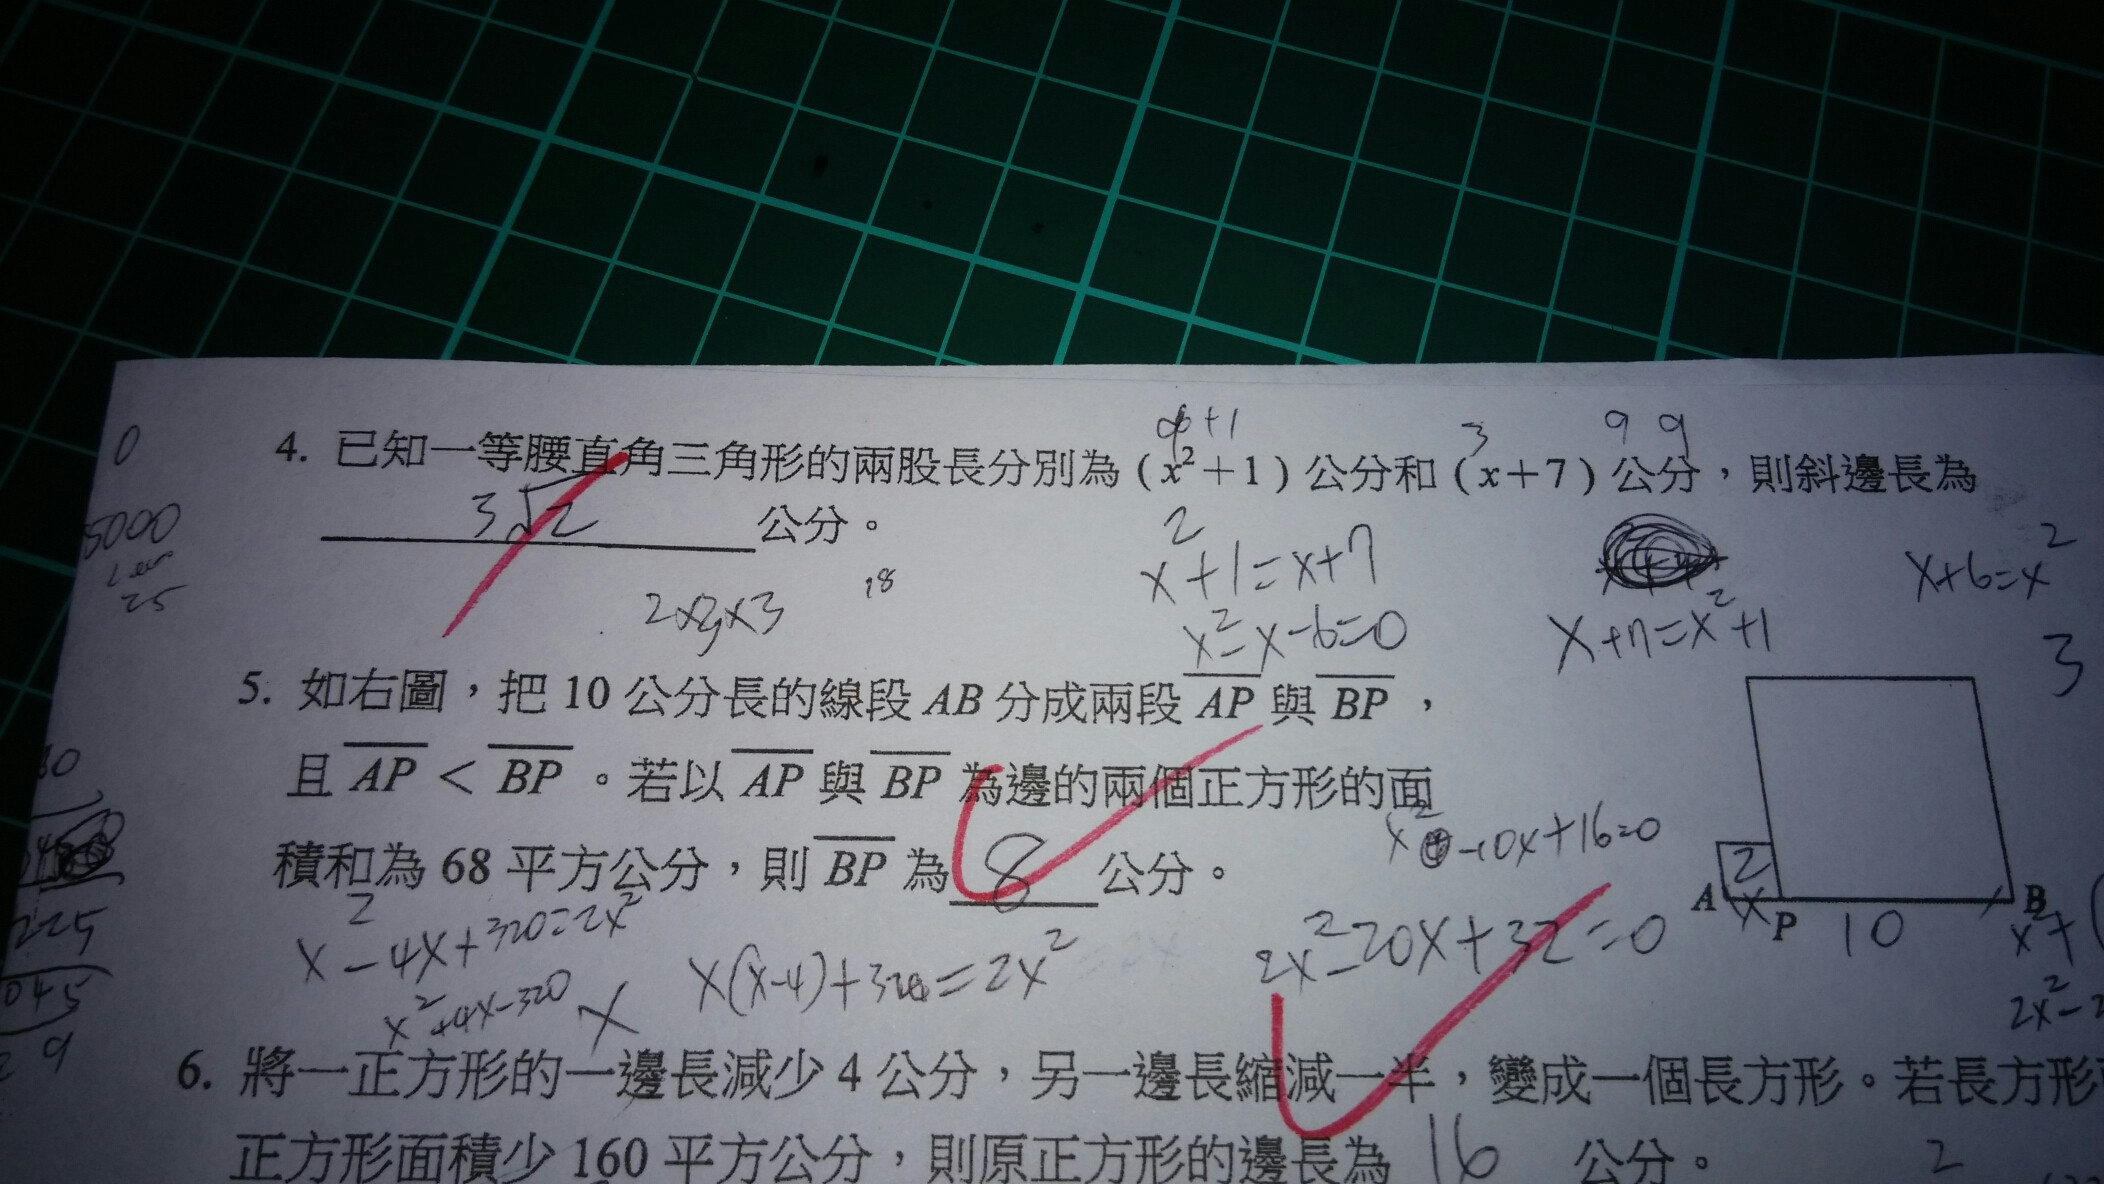 4. 已知一等腰直角三角形的兩股長分別為 (x²+1) 公分和 (x+7) 公分，則斜邊長為
3√2 公分。
x²+1=x+7
x+6=x²
2x3x3
18
x²-x-6=0
x+7=x²+1
3
5. 如右圖，把 10 公分長的線段 AB 分成兩段 AP 與 BP，
且 AP < BP。若以 AP 與 BP 為邊的兩個正方形的面
積和為 68 平方公分，則 BP 為 8 公分。
x²-10x+16=0
2
A x P 10 B
x²-4x+320=2x²
x(x-4)+320=2x²
2x²-20x+32=0
x²+4x-320
6. 將一正方形的一邊長減少 4 公分，另一邊長縮減一半，變成一個長方形。若長方形
正方形面積少 160 平方公分，則原正方形的邊長為 16 公分。